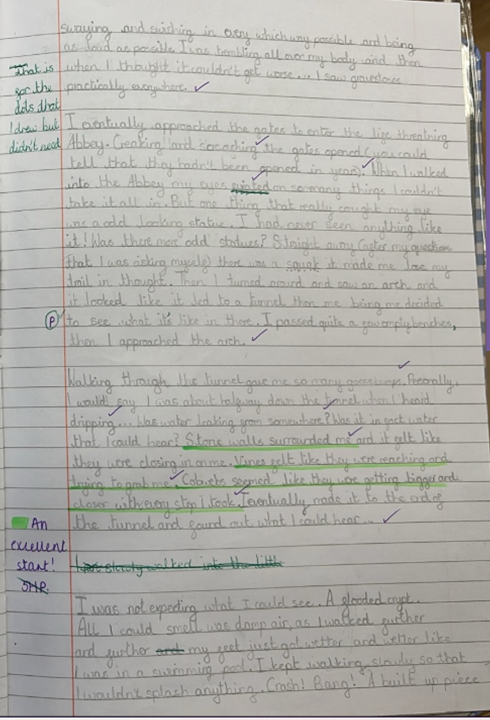 swaying and swishing in every which way possible and being
as loud as possible. I was trembling all over my body and then
when I thought it couldn't get worse... I saw gravestones
practically everywhere.
That is
for the
dots that
I drew but
didn't need
I eventually approached the gates to enter the life threatning
Abbey. Creaking and screaching the gates opened (you could
tell that they hadn't been opened in years). When I walked
into the Abbey my eyes on so many things I couldn't
take it all in. But one thing that really caught my eye
was a odd looking statue. I had never seen anything like
it! Was there more odd statues? Straight away (after my questions
that I was asking myself) there was a squeak it made me lose my
trail in thought. Then I turned around and saw an arch and
it looked like it led to a tunnel then me being me decided
P to see what it's like in there. I passed quite a few empty benches,
then I approached the arch.
Walking through the tunnel gave me so many goosebumps. Personally,
I would say I was about halfway down the tunnel when I heard
dripping... Was water leaking from somewhere? Was it in fact water
that I could hear? Stone walls surrounded me and it felt like
they were closing in on me. Vines felt like they were reaching and
trying to grab me. Cobwebs seemed like they were getting bigger and
closer with every step I took. I eventually made it to the end of
the tunnel and found out what I could hear...
An
excellent
start!
I slowly walked into the little
I was not expecting what I could see. A flooded crypt.
All I could smell was damp air, as I walked further
and further and my feet just got wetter and wetter like
I was in a swimming pool. I kept walking slowly so that
I wouldn't splash anything. Crash! Bang! A built up piece